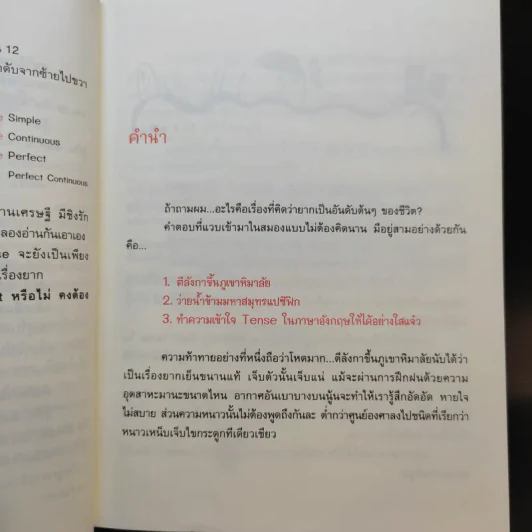 12
ดับจากซ้ายไปขวา
Simple
Continuous
Perfect
Perfect Continuous
านเศรษฐี มีชิงรัก
ลองอ่านกันเอาเอง
จะยังเป็นเพียง
เรื่องยาก
หรือไม่ คงต้อง
คำนำ
ถ้าถามผม...อะไรคือเรื่องที่คิดว่ายากเป็นอันดับต้นๆ ของชีวิต?
คำตอบที่แวบเข้ามาในสมองแบบไม่ต้องคิดนาน มีอยู่สามอย่างด้วยกัน
คือ...
1. ตีลังกาขึ้นภูเขาหิมาลัย
2. ว่ายน้ำข้ามมหาสมุทรแปซิฟิก
3. ทำความเข้าใจ Tense ในภาษาอังกฤษให้ได้อย่างใสแจ๋ว
ความท้าทายอย่างที่หนึ่งถือว่าโหดมาก...ตีลังกาขึ้นภูเขาหิมาลัยนับได้ว่า
เป็นเรื่องยากเย็นขนานแท้ เจ็บตัวนั้นเจ็บแน่ แม้จะผ่านการฝึกฝนด้วยความ
อุตสาหะมานะขนาดไหน อากาศอันเบาบางบนนู้นจะทำให้เรารู้สึกอัดอัด หายใจ
ไม่สบาย ส่วนความหนาวนั้นไม่ต้องพูดถึงกันละ ต่ำกว่าศูนย์องศาลงไปชนิดที่เรียกว่า
หนาวเหน็บเจ็บไขกระดูกทีเดียวเชียว